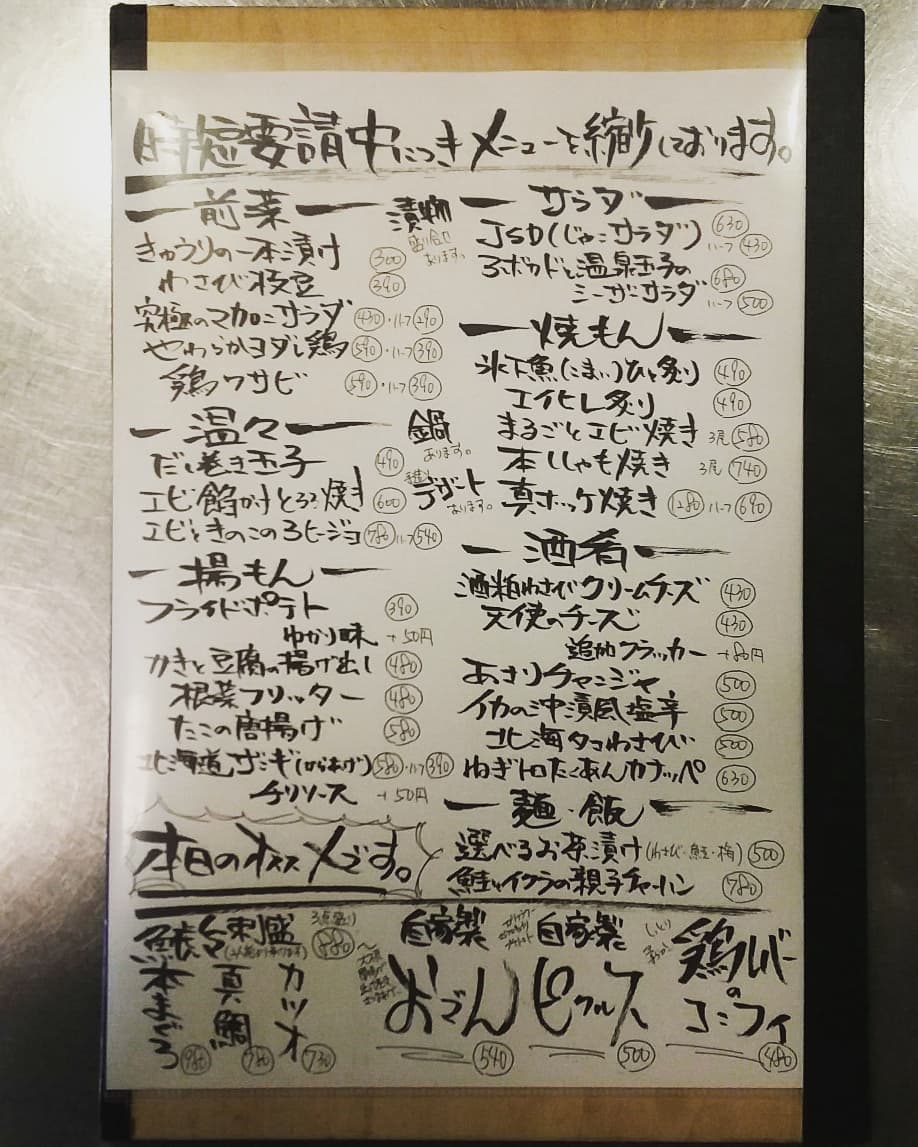 時短要請中につきメニューを縮少しております。
前菜
漬物
盛り合せ
あります。
きゅうりの一本漬け 300
わさび枝豆 390
究極のマカロニサラダ 430・ハーフ290
やわらかヨダレ鶏 590・ハーフ390
鶏ワサビ 590・ハーフ390
温々
鍋
あります。
だし巻き玉子 490
デザート
あります。
エビ餡かけとろろ焼き 600
エビときのこのアヒージョ 780ハーフ540
揚もん
フライドポテト 390
ゆかり味 +50円
かきと豆腐の揚げ出し 480
根菜フリッター 480
たこの唐揚げ 580
北海道ザンギ(からあげ) 580・ハーフ390
チリソース +50円
サラダ
JSD(じゃこサラダ) 630
ハーフ430
アボカドと温泉玉子の
シーザーサラダ 680
ハーフ500
焼もん
氷下魚(こまい)ひと炙り 490
エイヒレ炙り 490
まるごとエビ焼き 3尾580
本ししゃも焼き 3尾740
真ホッケ焼き 1280ハーフ690
酒肴
酒粕わさびクリームチーズ 430
天使のチーズ 430
追加クラッカー +80円
あさりチャンジャ 500
イカの沖漬風塩辛 500
北海タコわさび 500
ねぎトロたくあんカナッペ 630
麺・飯
選べるお茶漬け(わさび・鮭・梅) 500
鮭とイクラの親子チャーハン 780
本日のオススメです。
鮮魚刺盛 3点盛り 880
本まぐろ 980
真鯛 780
カツオ 730
自家製
おでん 540
自家製
ピクルス 500
鶏レバー
の
コンフィ 480